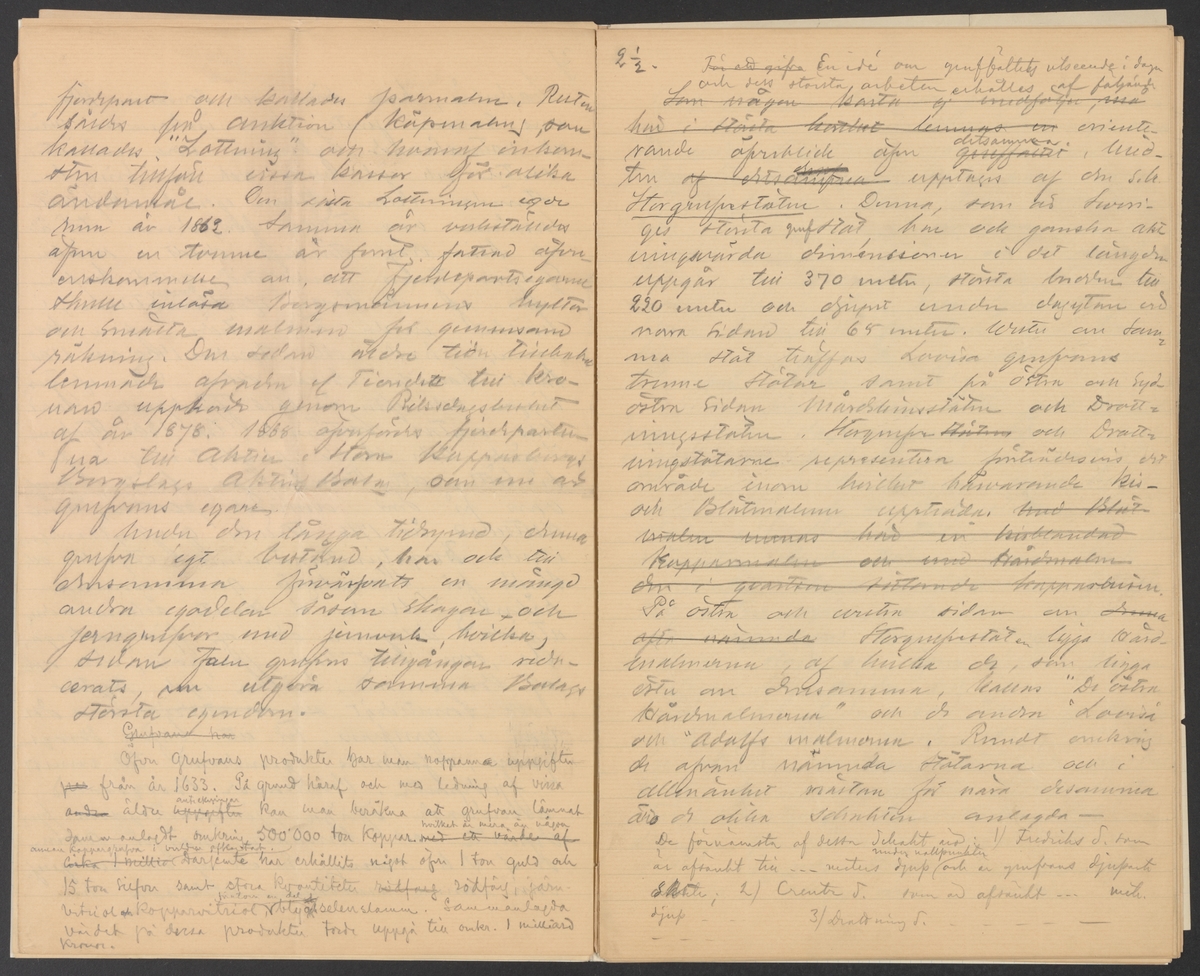 fjerdepart och kallades parmalm. Resten
såldes på auktion (köpmalm), som
kallades "Lottning" och hvaraf inkom-
sten tillföll vissa kassor för olika
ändamål. Den sista Lottningen egde
rum år 1862. Samma år verkställdes
äfven en trenne år förut fattad öfver-
enskommelse om, att Fjerdepartsegarne
skulle inlösa bergsmännens hyttor
och smälta malmen för gemensam
räkning. Den sedan äldre tider
lemnade afraden af Tionde till Kro-
nan upphörde genom Riksdagsbeslut
af år 1878. 1888 öfverfördes fjerdeparter-
na till Aktier i Stora Kopparbergs
Bergslags Aktie Bolag, som nu är
grufvans egare.
Under den långa tidrymd, denna
grufva egt bestånd, har och till
densamma förvärfvats en mängd
andra egodelar såsom skogar och
jerngrufvor med jernverk, hvilka,
sedan Falu grufvas tillgångar redu-
cerats, nu utgöra samma Bolags
största egendom.
Grufvans har
Öfver Grufvans produkter har man noggranna uppgifter
från år 1633. På grund häraf och med ledning af vissa
äldre anteckningar uppgifter kan man beräkna att grufvan lämnat
sammanlagdt omkring 500'000 ton koppar hvilket är mera än någon med ett värde af
annan koppargrufva i verlden afkastat. cirka 1 milliard. Därjemte har erhållits något öfver 1 ton guld och
15 ton silfver samt stora kvantiteter rödfärg, järn-
vitriol, kopparvitriol, selenslam. Sammanlagda
värdet på dessa produkter torde uppgå till omkr. 1 milliard
kronor.
2 ½.
För att gifva En idé om gruffältets utseende i dagen
och dess största arbeten erhålles af följande
Som någon karta ej medföljer må
här i största korthet lemnas en oriente-
rande öfverblick öfver detsamma gruffältet. Med-
ten upptages af den s.k.
Storgrufvestöten. Denna, som är Sveri-
ges största grufstöt har och ganska akt-
ningsvärda dimensioner i det längden
uppgår till 370 meter, största bredden till
220 meter och djupet under dagytan vid
norra sidan till 68 meter. Vester om sam-
ma stöt träffas Lovisa grufvans
trenne stötar samt på östra och syd-
östra sidan Mårdskinsstöten och Drott-
ningsstöten. Storgrufve stöten och Drott-
ningstötarne representera företrädesvis det
område inom hvilket härvarande Kis-
och Blötmalmer uppträda. Med Blöt-
malm menas här en kisblandad
Kopparmalm och med Hårdmalm
den i qvartsen sittande kopparkisen.
På östra och vestra sidan om denna
ofta nämnda Storgrufvestöten ligga Hård-
malmerna, af hvilka de, som ligga
öster om densamma, kallas "De östra
Hårdmalmerna" och de andra "Lovisa
och "Adolfs malmerna. Rundt omkring
de ofvan nämnda stötarna och i
allmänhet nästan för nära desamma
äro de olika schakten anlagda —
De förnämsta af dessa schakt äro: 1) Fredriks S. som
är afsänkt till --- meters djup under nollpunkten (och är grufvans djupaste
schakt; 2) Creutz S. som är afsänkt --- met.
djup — 3) Drottning S.